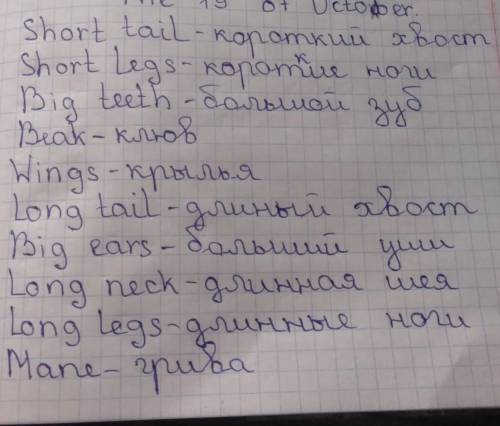 The 19 of October.
Short tail - короткий хвост
Short legs - короткие ноги
Big teeth - большой зуб
Beak - клюв
Wings - крылья
Long tail - длиный хвост
Big ears - больший уши
Long neck - длинная шея
Long legs - длинные ноги
Mane - грива